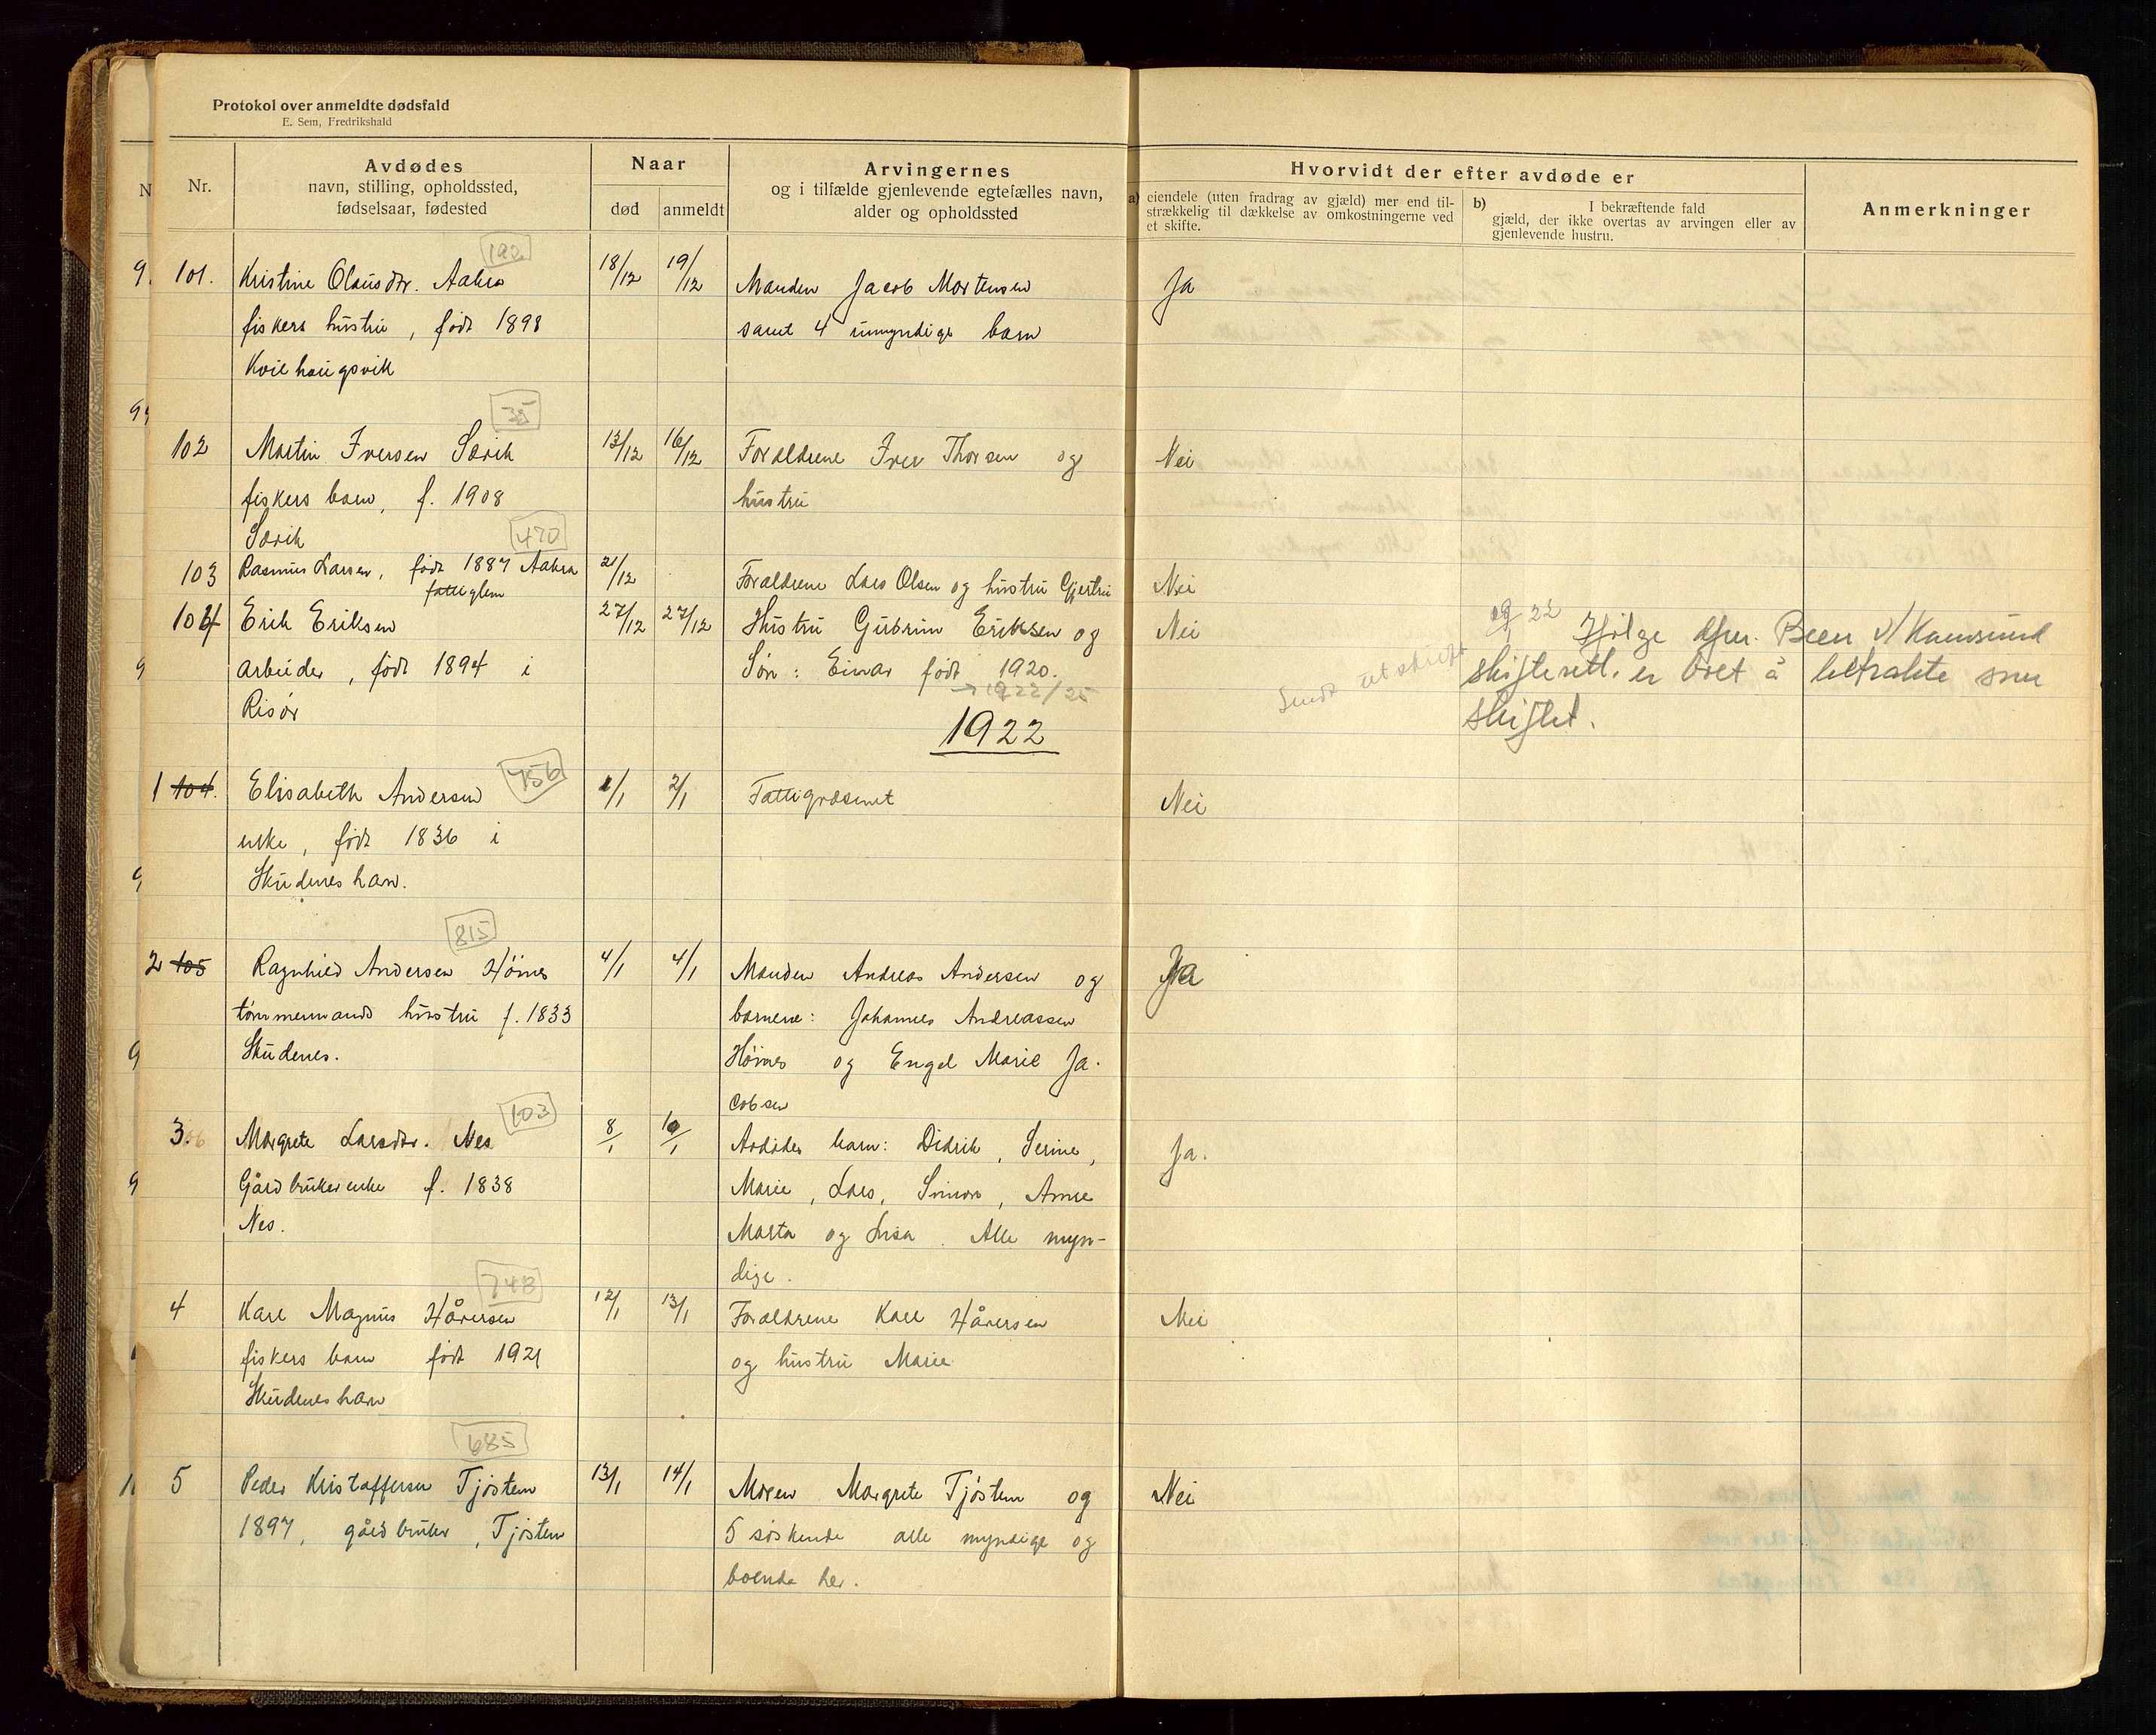 Protokol over anmeldte dødsfald
E. Sem, Fredrikshald
Nr.
Avdødes
navn, stilling, opholdssted,
fødselsaar, fødested
Naar
død
anmeldt
Arvingernes
og i tilfælde gjenlevende egtefælles navn,
alder og opholdssted
Hvorvidt der efter avdøde er
a) eiendele (uten fradrag av gjæld) mer end til-
strækkelig til dækkelse av omkostningerne ved
et skifte.
b) I bekræftende fald
gjæld, der ikke overtas av arvingen eller av
gjenlevende hustru.
Anmerkninger
192
101. Kristine Olausdtr. Aakra 18/12 19/12 Manden Jacob Mortensen Ja
fiskers hustru, født 1898 samt 4 umyndige barn
Kvilhaugsvik
35
102 Martin Iversen Særik 13/12 16/12 Forældrene Iver Thorsen og Nei
fiskers barn, f. 1908 hustru
Særik
470
103 Rasmus Larsen, født 1887 Aakra 21/12 Forældrene Lars Olsen og hustru Gjertru Nei
fattiglem
104 Erik Eriksen 27/12 27/12 Hustru Gudrun Eriksen og Nei
arbeider, født 1894 i Søn: Einar født 1920.
Risør
→ 1922/25
Sendt utskrift
22 Ifølge Beer v/Karmsund
skifterett. er boet å betrakte som
skiftet.
1922
456
1 104. Elisabeth Andersen 1/1 2/1 Fattigvæsenet Nei
enke, født 1836 i
Skudeneshavn.
815
2 105 Ragnhild Andersen Høines 4/1 4/1 Manden Andreas Andersen og Ja
tømmermands hustru f. 1833 barnene: Johannes Andreassen
Skudenes. Høines og Engel Marie Ja-
cobsen
103
3. Margrete Larsdtr. Nes 8/1 10/1 Avdødes barn: Didrik, Serine, Ja.
Gårdbrukerenke f. 1838 Marie, Lars, Simon, Anne
Nes. Marta og Lisa. Alle myn-
dige.
748
4 Karl Magnus Håversen 12/1 13/1 Forældrene Karl Håversen Nei
fiskers barn født 1921 og hustru Marie
Skudeneshavn
685
5 Peder Kristoffersen Tjøsten 13/1 14/1 Moren Margrete Tjøsten og Nei
1897, gårdbruker, Tjøsten 5 søskende alle myndige og
boende her.